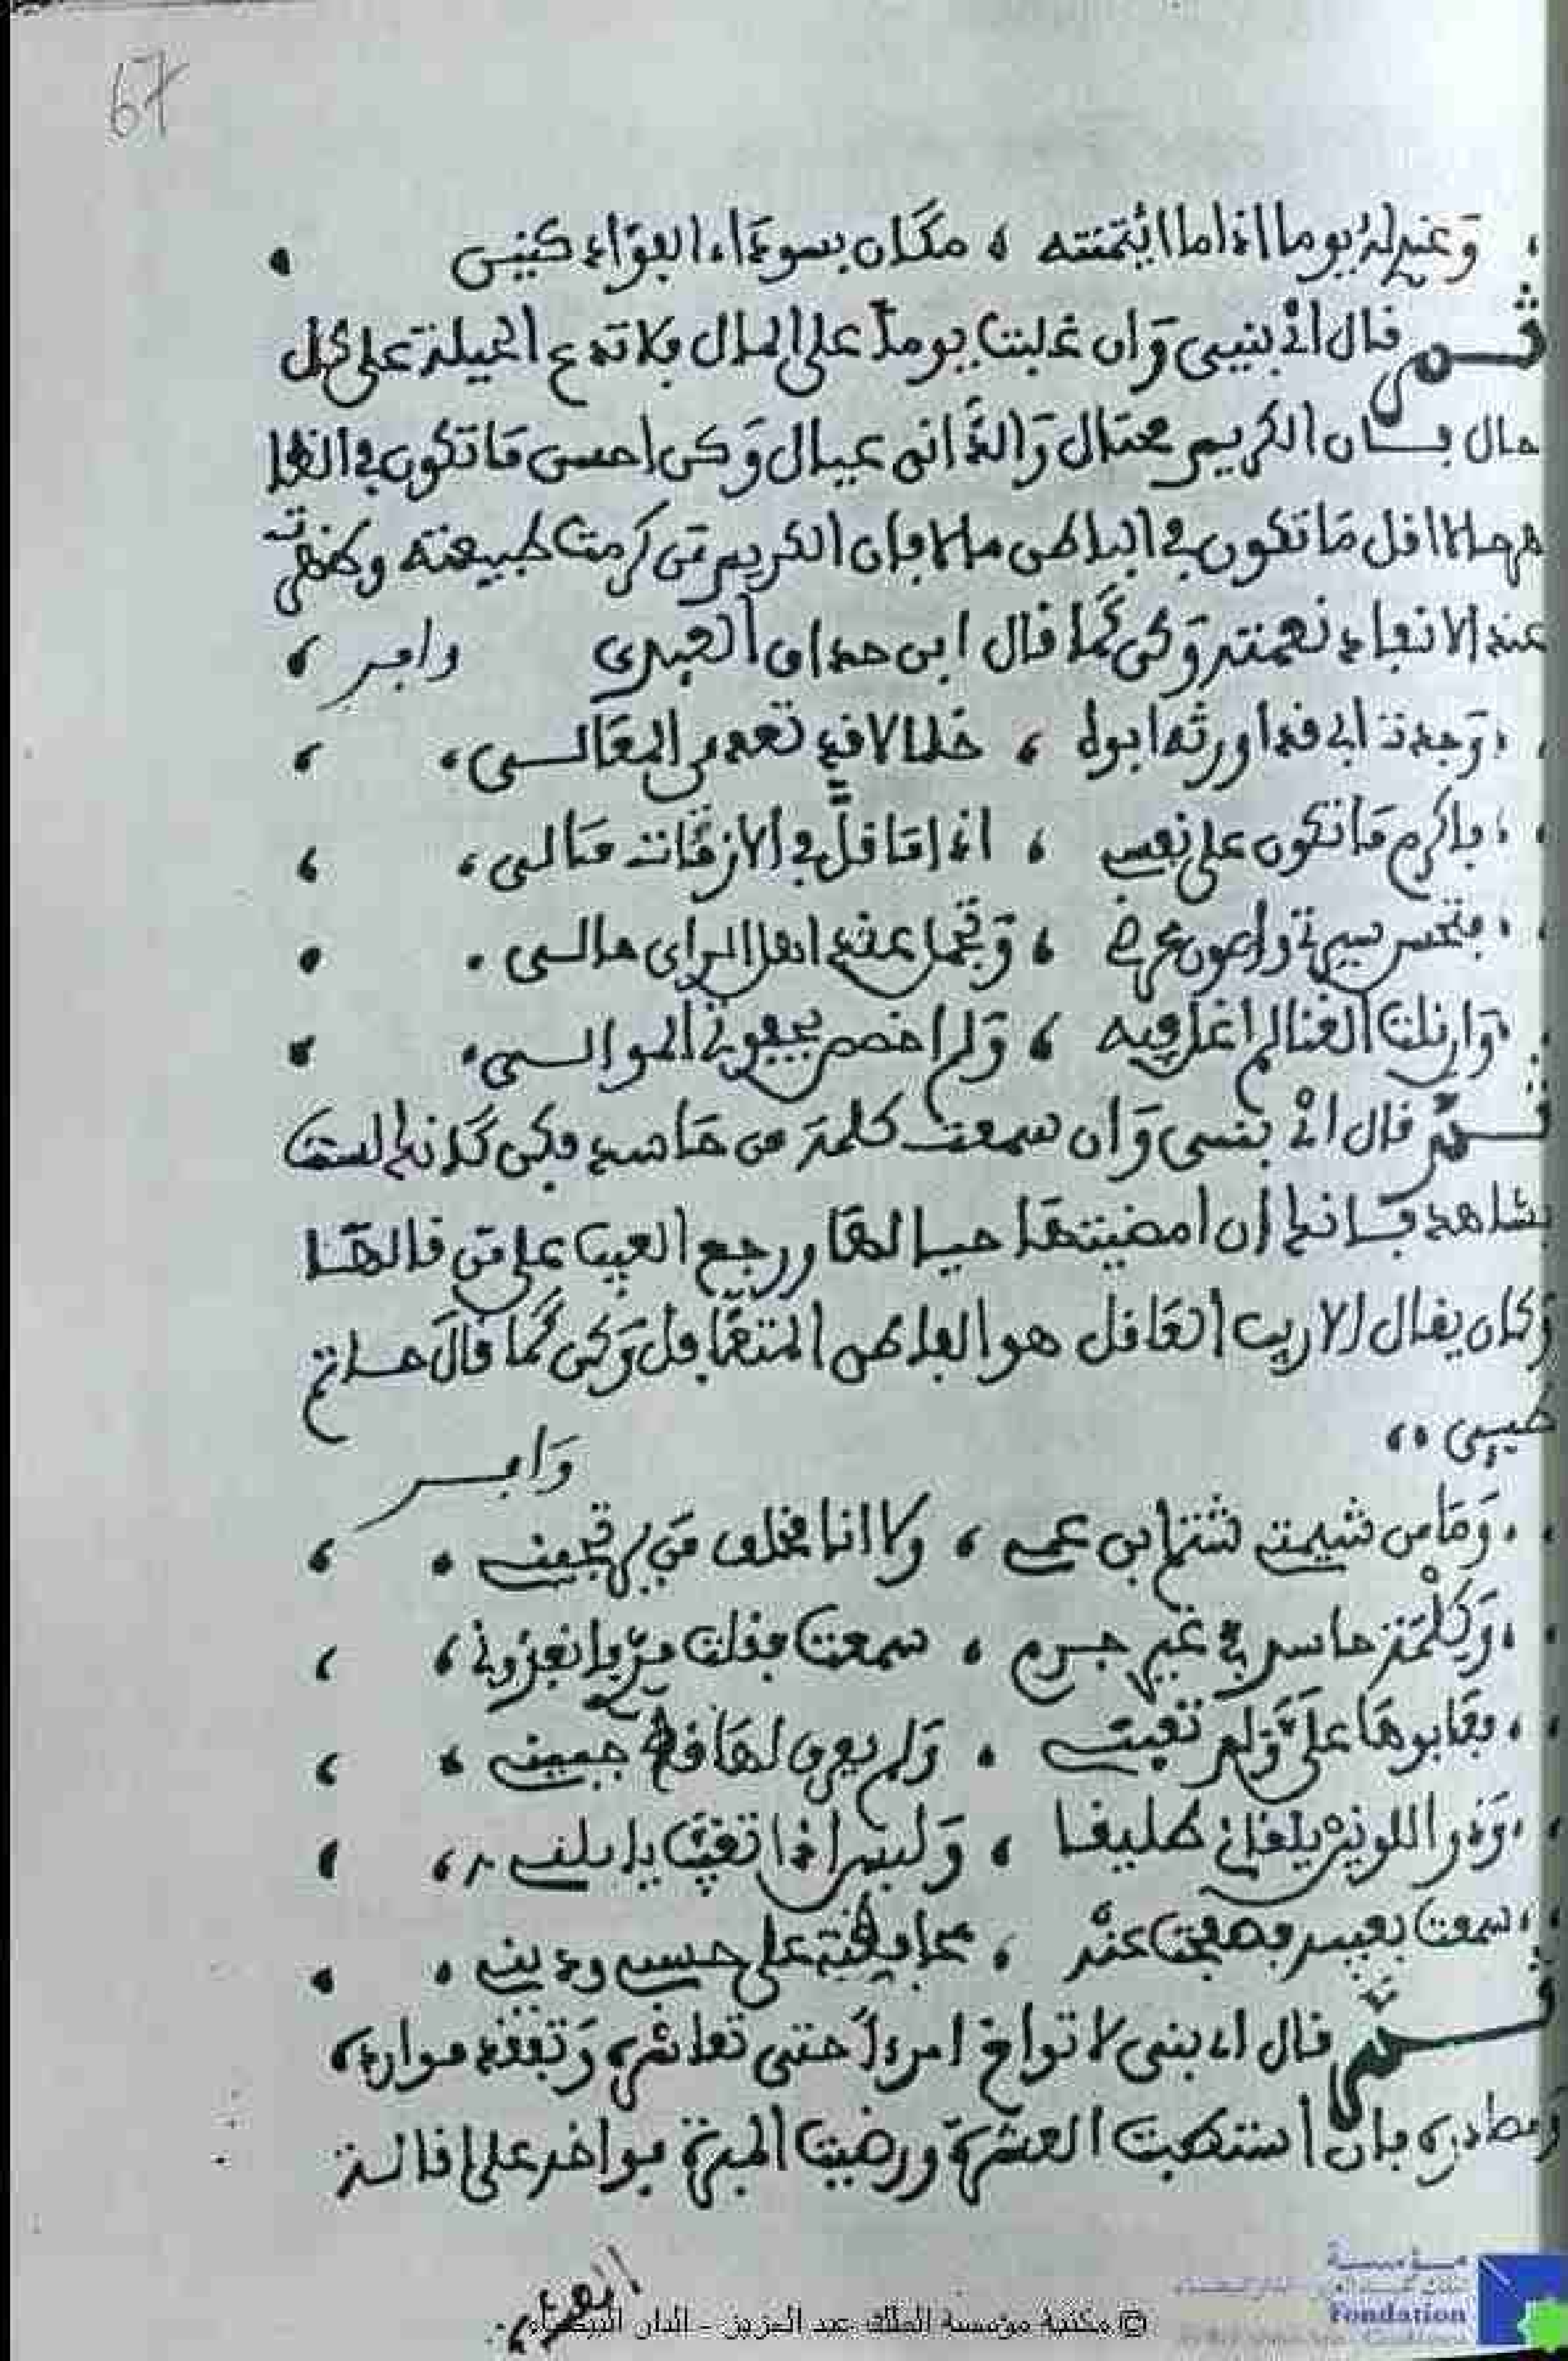 67
وعندي له يوما اذا ما ائتمنته ، مكان بسوداء الفؤاد كنين
ثم قال اي بني وان غلبت يوما على المال فلا تدع الحيلة على كل
حال فان الكريم محتال والدني عيال وكن احسن ما تكون في الظا
هر حالا اقل ما تكون في الباطن مالا فان الكريم من كرمت طبيعته وظهرت
عند الانفاد نعمته وكن كما قال ابن حذاق العبدي
وجدت ابي قد اورثه ابوه ، خلالا قد تعد من المعالي
فاكرم ما تكون علي نفسي ، اذا ما قل في الازمات مالي
فتحسن سيرتي واصون عرضي ، وتجمل عند اهل الراي حالي
وان نلت الغنا لم اغل فيه ، ولم اخصص بجفوتي الموالي
ثم قال اي بني وان سمعت كلمة من حاسد فكن كانك لست
بشاهد فانك ان امضيتها حيالها ورجع العيب على من قالها
وكان يقال الاريب العاقل هو الفطن المتغافل وكن كما قال حاتم
طيي
وافر
وما من شيمتي شتم ابن عمي ، ولا انا مخلف من يرتجيني
وكلمة حاسد في غير جرم ، سمعت فقلت مري فانفذيني
فعابوها علي ولم تعبني ، ولم يعرق لها قط جبيني
وذو اللونين يلقاني طليقا ، وليس اذا تغيب ياتليني
سمعت بعيبه فصفحت عنه ، محافظة على حسبي وديني
ثم قال اي بني لا تواخ امرءا حتى تعاشره وتتفقد موارده
ومصادره فان استطبت العشرة ورضيت الخبرة فواخه على اقالة
العثرة
© مكتبة مؤسسة الملك عبد العزيز - الدار البيضاء
مؤسسة
Fondation